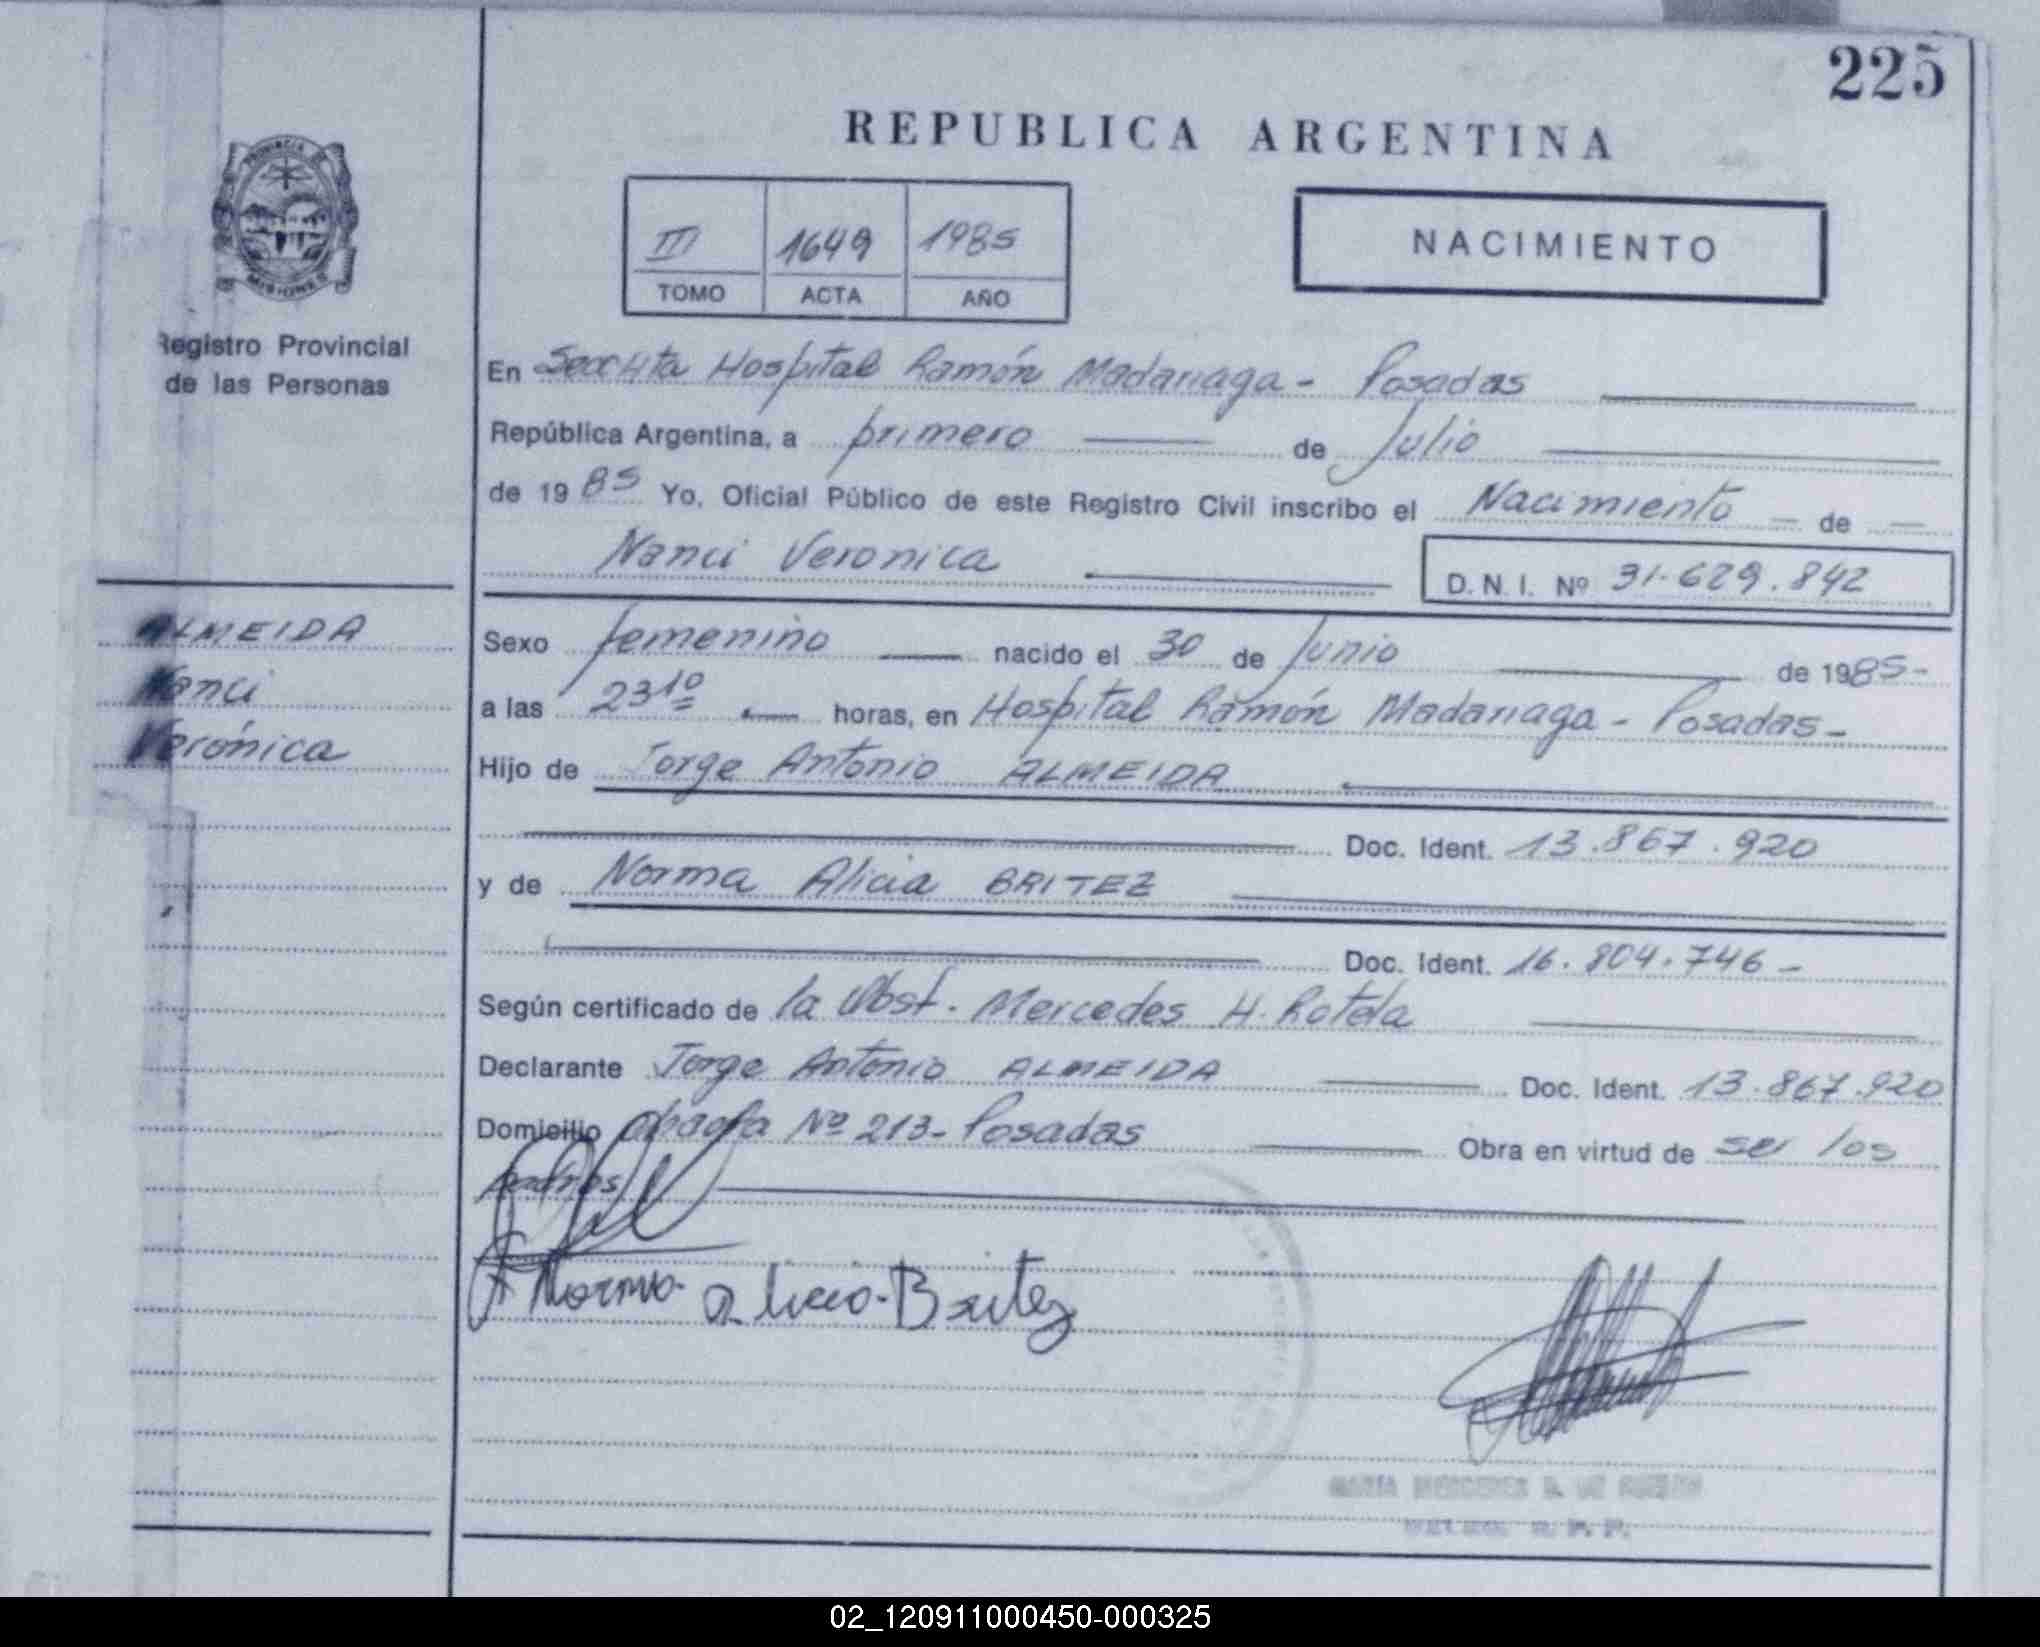 225
REPUBLICA ARGENTINA
III 1649 1985
TOMO ACTA AÑO
NACIMIENTO
PROVINCIA DE
MISIONES
Registro Provincial
de las Personas
En Hospital Ramón Madariaga - Posadas
República Argentina, a primero de Julio
de 1985 Yo, Oficial Público de este Registro Civil inscribo el Nacimiento de
Nanci Veronica
D. N. I. Nº 31.629.842
ALMEIDA
Nanci
Verónica
Sexo femenino nacido el 30 de Junio de 1985-
a las 23 10 horas, en Hospital Ramón Madariaga - Posadas-
Hijo de Jorge Antonio ALMEIDA
Doc. Ident. 13.867.920
y de Norma Alicia BRITEZ
Doc. Ident. 16.804.746-
Según certificado de la Obst. Mercedes H. Rotela
Declarante Jorge Antonio ALMEIDA Doc. Ident. 13.867.920
Domicilio Nº 213- Posadas Obra en virtud de ser los
padres
Norma alicia Britez
MARIA MERCEDES
02_120911000450-000325